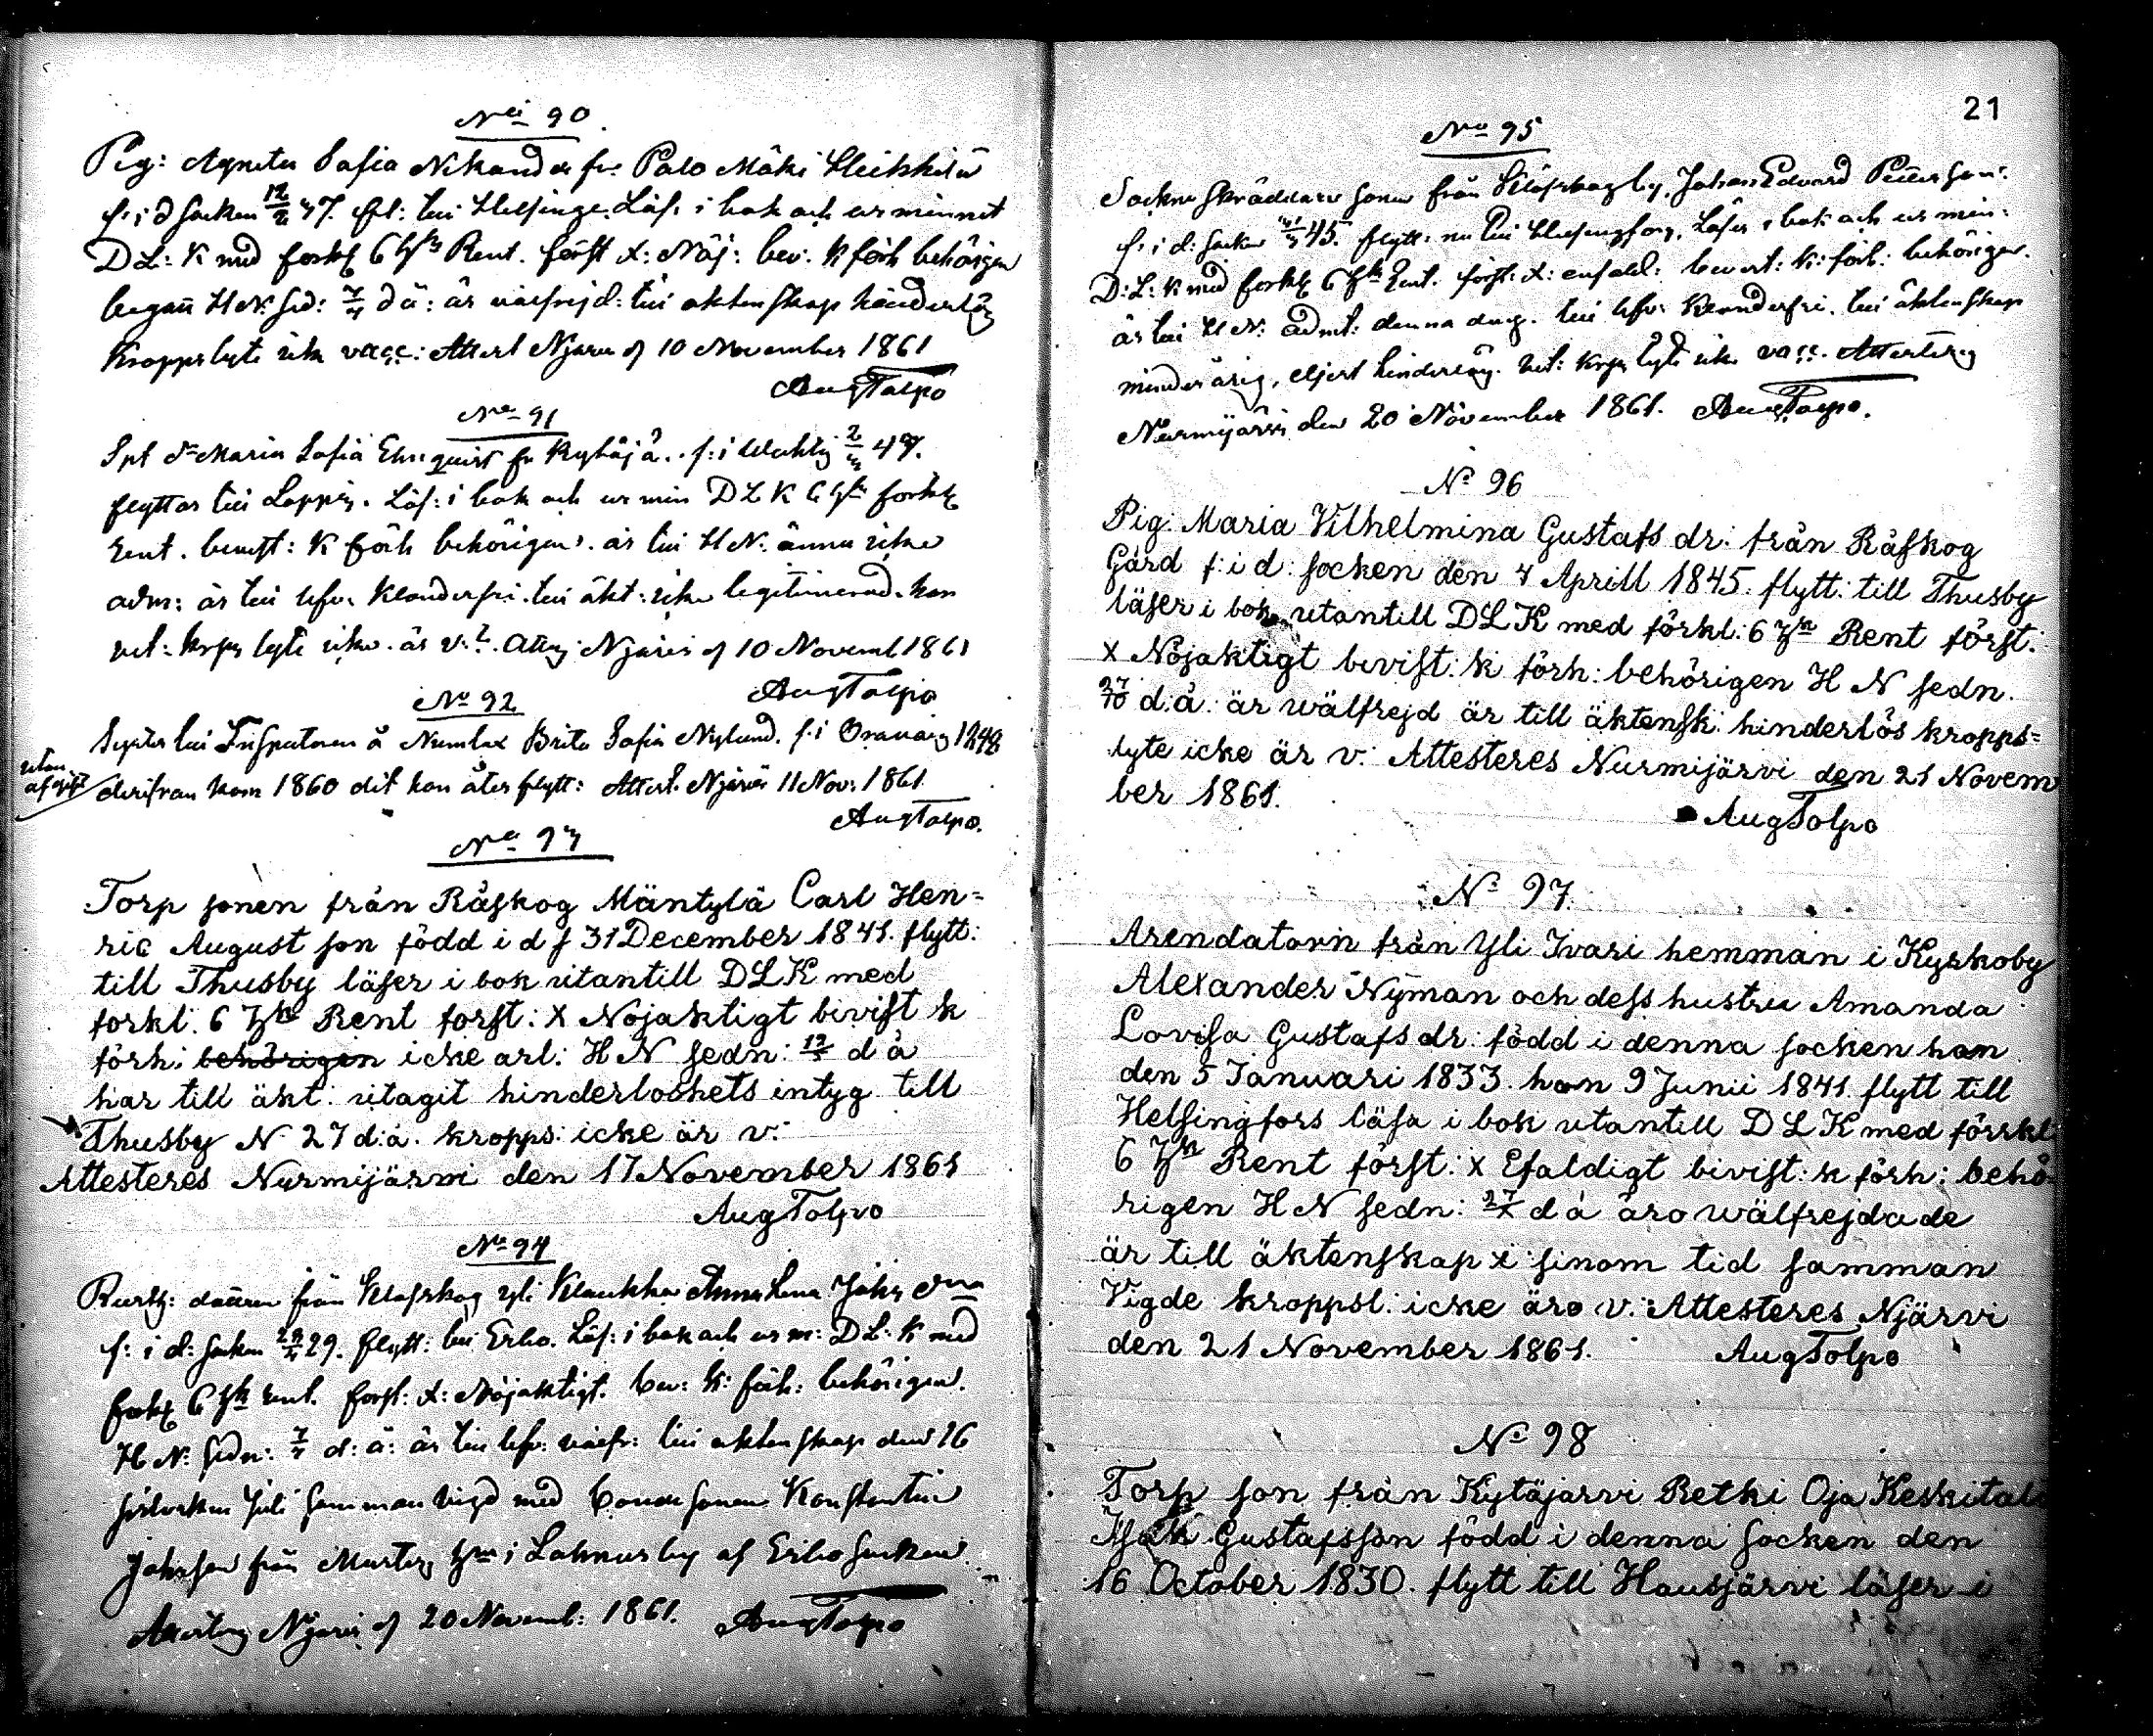 No 90
Pig: Agneta Sofia Nikander fr. Palo Mäki Heikkilä
f: i d Socken 12/2 37. fl: till Helsinge. Läs: i bok och ur minnet
D L: K med forkl 6 Hst Rent. först x: Nöj: bev: k förh behörigen
begått H N. sed: 7/4 d å: är välfrejd: till äktenskap hinderlös
Kroppslyte icke vacc: Attest Njärvi d 10 November 1861
Aug Tolpo
No 91
dr Maria Sofia Ehnquist fr Kytäjä. f: i 2/3 47.
flyttar till Loppis. Läs: i bok och ur min D L K 6 Hst forkl
Rent. bevist: K förh behörigen. är till H N. ännu icke
adm: är till lefv. Klanderfri. till äkt: icke legitimerad. han
vet: krps lyte icke. är v. Attes Njärvi d 10 Novemb 1861
Aug Tolpo
No 92
Syster till Inspectoren å Numlax Brita Sofia Nylund. f: i 1848
utan afgift
derifran kom 1860 dit hon åter flytt: Attest. Njärvi 11 Nov: 1861
Aug Tolpo.
No 93
Torp sonen från Råskog Mäntylä Carl Hen=
ric August son född i d s 31 December 1841. flytt:
till Thusby läser i bok utantill D L K med
forkl. 6 Hst Rent forst: x Nojaktigt bivist k
förh: behörigen icke arl: H N sedn: 12/5 d å
har till äkt. utagit hinderloshets intyg till
Thusby N 27 d:å. kropps: icke är v:
Attesteres Nurmijärvi den 17 November 1861
Aug Tolpo
No 94
Rusth: dottren från Klafskog Yli Klaukka Anna Lena Johs dra
f: i d: Socken 29/4 29. flytt: till Erho. Läs: i bok och ur m: D L: K med
forkl 6 Hst Rent. forst: x: Nöjaktigt. bev: K: förh: behörigen.
H N: sedn: 7/4 d: å: är till lefv: välfr: till äktenskap den 16
sistvekne Juli samman vigd med bonde sonen Konstantin
Johsson från Hm i Lahnus by af Esbo Socken
Attesteres Njärvi d 20 Novemb: 1861. Aug Tolpo
21
No 95
Socken Skräddare sonen från Klafskog by, Johan Edvard Petterson:
f: i d: Socken 45. flytt: nu till Helsingfors, Läser i bok och ur min:
D: L: K med forkl 6 Hst Rent. först: x: enfald: bevist: K: förh: behörigen.
är till H N: admt: denna dag. till lefv: Klanderfri. till äktenskap
minderårig, eljest hinderlös. vet: krps lyte icke vacc. Attesteres
Nurmijärvi den 20 November 1861. Aug Tolpo.
No 96
Pig: Maria Vilhelmina Gustafs dr: från Råskog
Gård f: i d: socken den 4 Aprill 1845. flytt: till Thusby
läser i bok utantill D L K med förkl: 6 Hst Rent först:
x Nöjaktigt bivist: k förh: behörigen H N sedn.
27/10 d: å: är wälfrejd är till äktensk: hinderlös kropps=
lyte icke är v: Attesteres Nurmijärvi den 21 Novem
ber 1861.
Aug Tolpo
No 97
Arendatorn från Yli Ivari hemman i Kyrkoby
Alexander Nyman och dess hustru Amanda
Lovisa Gustafs dr: född i denna socken han
den 5 Januari 1833. hon 9 Junii 1841. flytt till
Helsingfors läsa i bok utantill D L K med förskl
6 Hst Rent först: x Efaldigt bivist: k förh: behö=
rigen H N sedn: 27/X d å äro wälfrejdade
är till äktenskap x i sinom tid samman
Vigde kroppsl: icke äro v: Attesteres Njärvi
den 21 November 1861. Aug Tolpo
No 98
Torp son från Kytäjärvi Retki Oja Keskital
Isak Gustafsson född i denna socken den
16 October 1830. flytt till Hausjärvi läser i